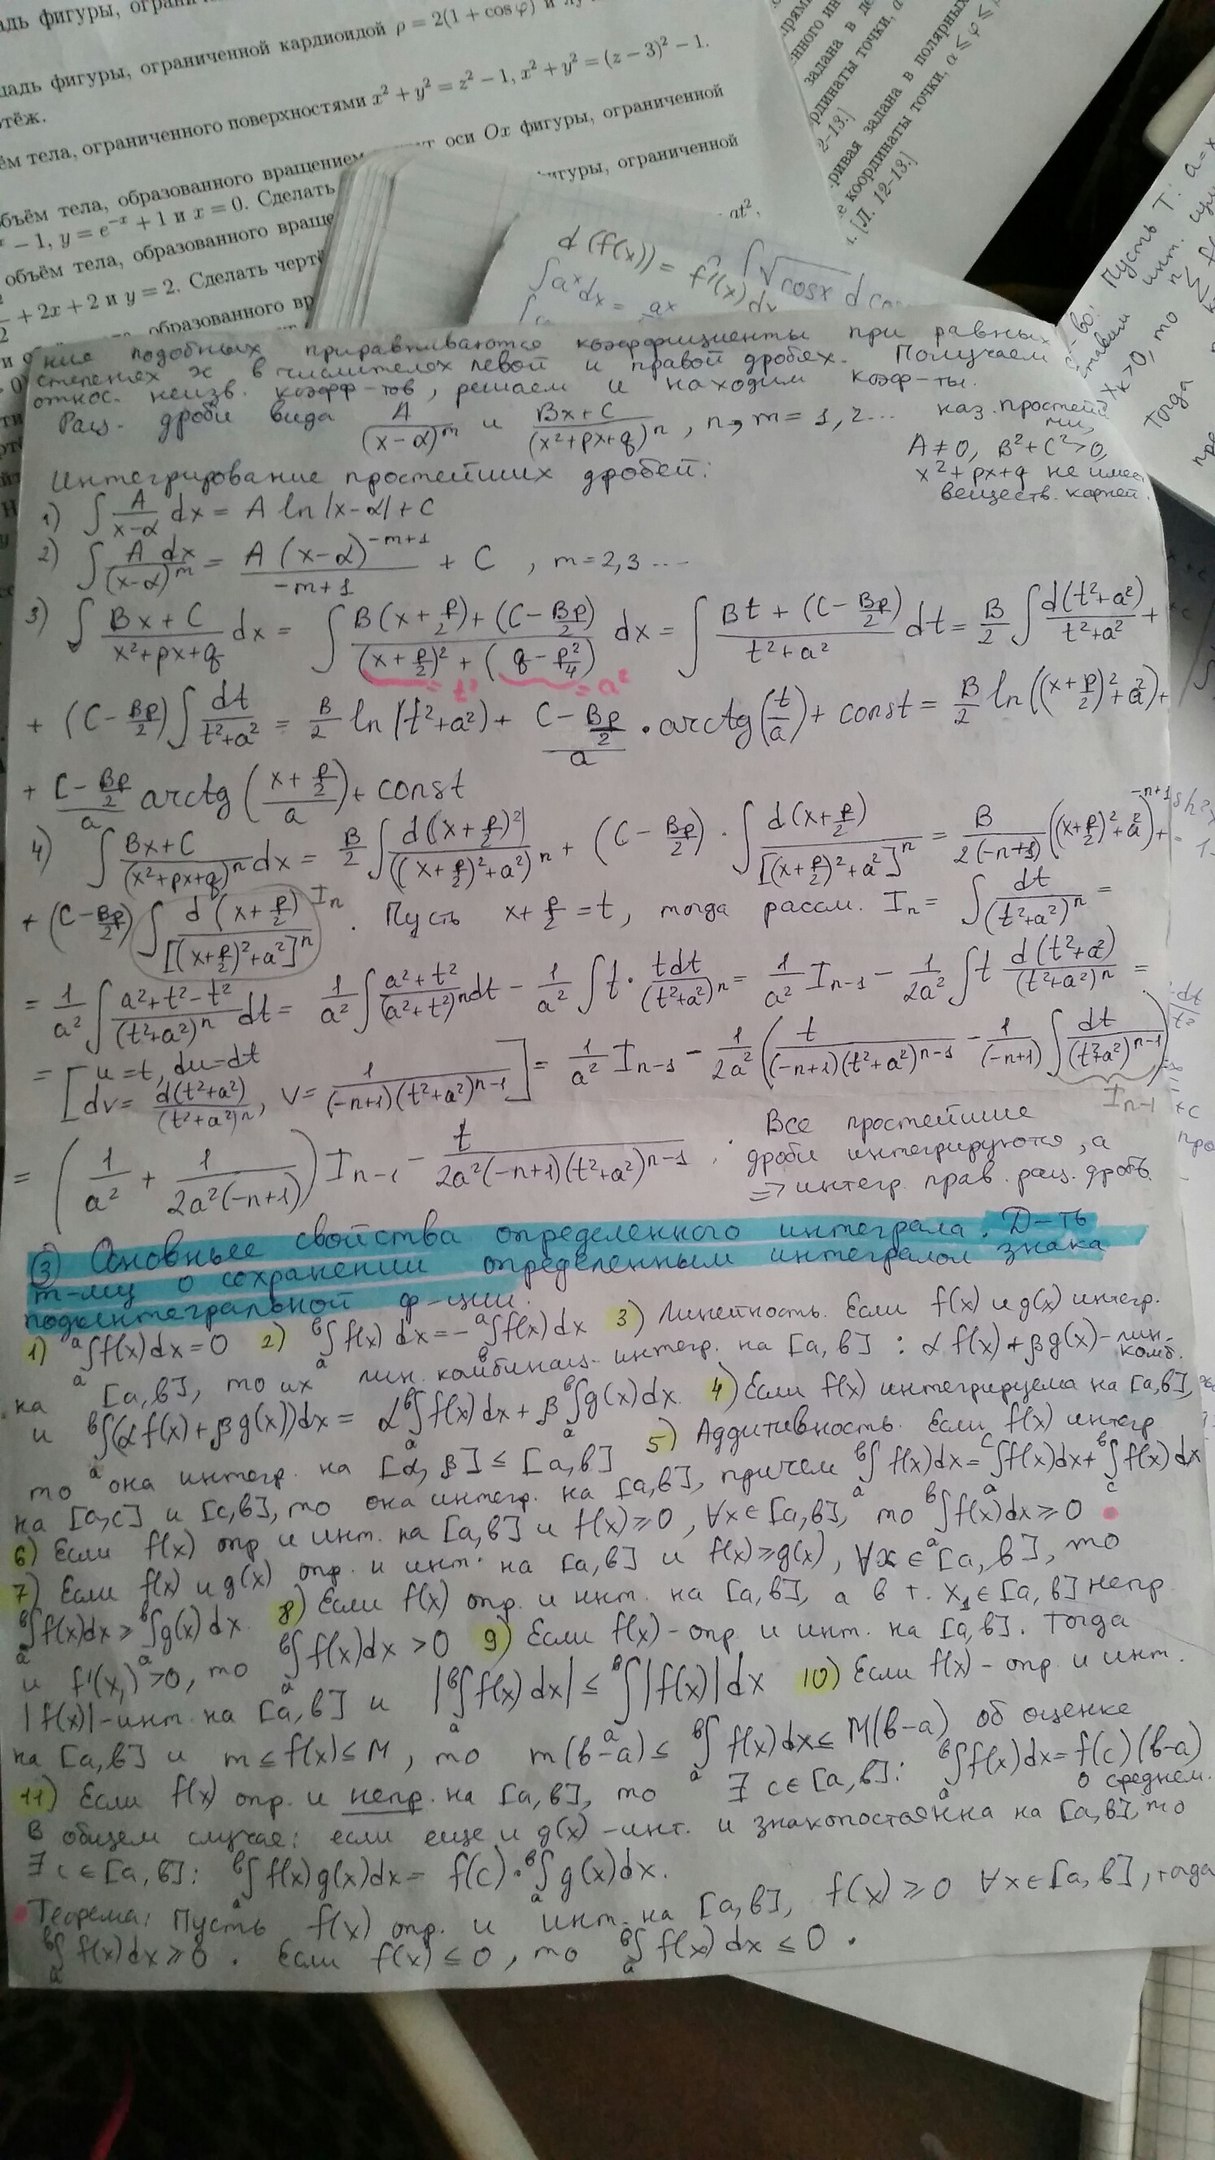 фигуры, ограниченной кардиоидой ρ = 2(1 + cos φ) и
ём тела, ограниченного поверхностями x² + y² = z² − 1, x² + y² = (z − 3)² − 1.
объём тела, образованного вращением оси Ox фигуры, ограниченной
− 1, y = e⁻ˣ + 1 и x = 0. Сделать
объём тела, образованного фигуры, ограниченной
+ 2x + 2 и y = 2. Сделать
образованного
at²,
ривая задана в полярных
е координаты точки, α ≤ φ ≤
[Л. 12–13.]
d(f(x)) = f'(x)dx
∫√cosx d cos
∫aˣdx =
Пусть T: a=x
Тогда
ние подобных приравниваются коэффициенты при равных
степенях x в числителях левой и правой дробях. Получаем
относ. неизв. коэфф-тов, решаем и находим коэф-ты.
Рац. дроби вида A/(x−α)^m и (Bx+C)/(x²+px+q)^n, n, m = 1, 2... наз. простейшими,
A≠0, B²+C²>0,
x²+px+q не имеет
веществ. корней.
Интегрирование простейших дробей:
1) ∫ A/(x−α) dx = A ln|x−α| + C
2) ∫ A dx/(x−α)^m = A(x−α)^(−m+1)/(−m+1) + C , m=2,3 ...
3) ∫ (Bx+C)/(x²+px+q) dx = ∫ (B(x+p/2)+(C−Bp/2))/((x+p/2)²+(q−p²/4)) dx = ∫ (Bt+(C−Bp/2))/(t²+a²) dt = B/2 ∫ d(t²+a²)/(t²+a²) +
= t² = a²
+ (C−Bp/2) ∫ dt/(t²+a²) = B/2 ln(t²+a²) + (C−Bp/2)/a · arctg(t/a) + const = B/2 ln((x+p/2)²+a²)+
+ (C−Bp/2)/a arctg((x+p/2)/a) + const
4) ∫ (Bx+C)/(x²+px+q)^n dx = B/2 ∫ d((x+p/2)²)/((x+p/2)²+a²)^n + (C−Bp/2) · ∫ d(x+p/2)/[(x+p/2)²+a²]^n = B/(2(−n+1)) ((x+p/2)²+a²)^(−n+1) +
+ (C−Bp/2) ∫ d(x+p/2)/[(x+p/2)²+a²]^n Iₙ . Пусть x+p/2=t, тогда рассм. Iₙ= ∫ dt/(t²+a²)^n =
= 1/a² ∫ (a²+t²−t²)/(t²+a²)^n dt = 1/a² ∫ (a²+t²)/(a²+t²)^n dt − 1/a² ∫ t · tdt/(t²+a²)^n = 1/a² Iₙ₋₁ − 1/2a² ∫ t d(t²+a²)/(t²+a²)^n =
= [u=t, du=dt
dv= d(t²+a²)/(t²+a²)^n, v= 1/((−n+1)(t²+a²)^(n−1))] = 1/a² Iₙ₋₁ − 1/2a² (t/((−n+1)(t²+a²)^(n−1)) − 1/(−n+1) ∫ dt/(t²+a²)^(n−1))
Iₙ₋₁
= (1/a² + 1/(2a²(−n+1))) Iₙ₋₁ − t/(2a²(−n+1)(t²+a²)^(n−1)) . Все простейшие
дроби интегрируются, а
=> интегр. прав. рац. дробь.
③ Основные свойства определенного интеграла. Д-ть
т-му о сохранении определенным интегралом знака
подынтегральной ф-ции.
1) ᵃ∫ₐ f(x)dx=0 2) ᵇ∫ₐ f(x)dx=−ᵃ∫ᵦ f(x)dx 3) Линейность. Если f(x) и g(x) интегр.
на [a,b], то их лин. комбинац. интегр. на [a,b] : αf(x)+βg(x)−лин. комб.
и ᵇ∫ₐ(αf(x)+βg(x))dx = αᵇ∫ₐf(x)dx+βᵇ∫ₐg(x)dx. 4) Если f(x) интегрируема на [a,b],
то она интегр. на [α,β]≤[a,b] 5) Аддитивность. Если f(x) интегр
на [a,c] и [c,b], то она интегр. на [a,b], причем ᵇ∫ₐ f(x)dx=ᶜ∫ₐf(x)dx+ᵇ∫c f(x)dx
6) Если f(x) опр и инт. на [a,b] и f(x)≥0, ∀x∈[a,b], то ᵇ∫ₐf(x)dx≥0
7) Если f(x) и g(x) опр. и инт. на [a,b] и f(x)≥g(x), ∀x∈[a,b], то
ᵇ∫ₐf(x)dx≥ᵇ∫ₐg(x)dx 8) Если f(x) опр. и инт. на [a,b], а в т. x₁∈[a,b] непр.
и f'(x₁)>0, то ᵇ∫ₐf(x)dx >0 9) Если f(x)−опр. и инт. на [a,b]. Тогда
|f(x)|−инт. на [a,b] и |ᵇ∫ₐf(x)dx|≤ᵇ∫ₐ|f(x)|dx 10) Если f(x)−опр. и инт.
на [a,b] и m≤f(x)≤M, то m(b−a)≤ ᵇ∫ₐf(x)dx≤M(b−a) об оценке
11) Если f(x) опр. и непр. на [a,b], то ∃ c∈[a,b]: ᵇ∫ₐf(x)dx=f(c)(b−a)
о среднем.
В общем случае: если еще и g(x)−инт. и знакопостоянна на [a,b], то
∃ c∈[a,b]: ᵇ∫ₐf(x)g(x)dx= f(c)·ᵇ∫ₐg(x)dx.
Теорема: Пусть f(x) опр. и инт. на [a,b], f(x)≥0 ∀x∈[a,b], тогда
ᵇ∫ₐf(x)dx≥0 . Если f(x)≤0, то ᵇ∫ₐf(x)dx≤0 .